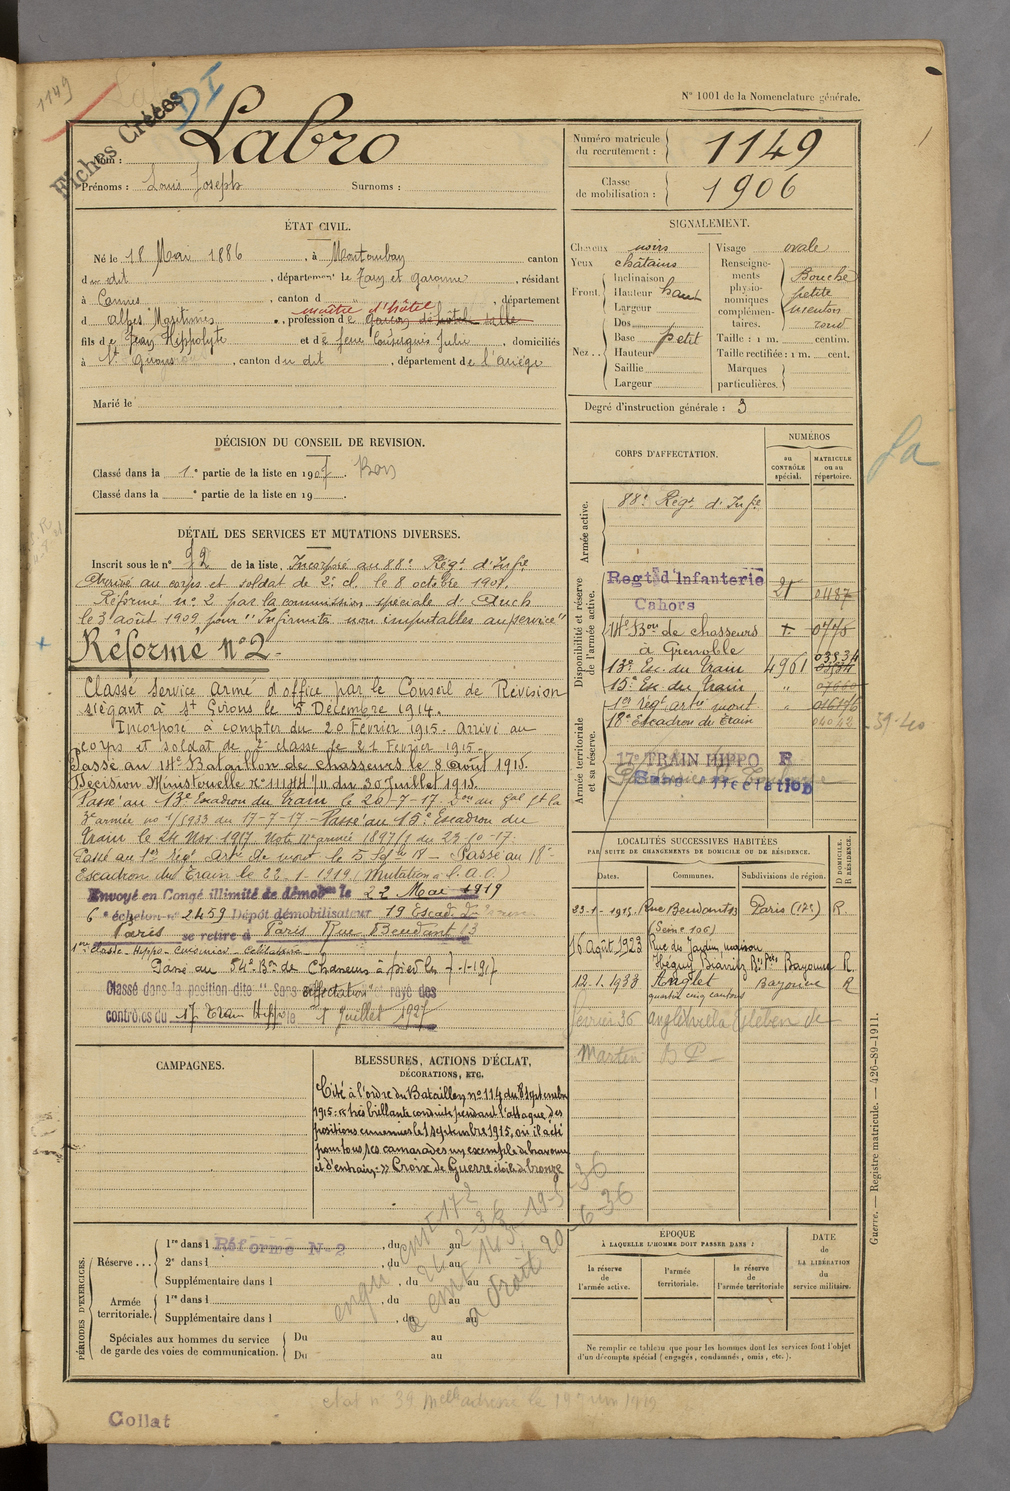 1149
DI
Fiches Créées
N° 1001 de la Nomenclature générale.
Nom : Labro
Prénoms : Louis Joseph Surnoms :
Numéro matricule du recrutement : 1149
Classe de mobilisation : 1906
ÉTAT CIVIL.
Né le 18 Mai 1886, à Montauban canton
dudit, département de Tarn et Garonne, résidant
à Cannes, canton d " , département
maître d'hôtel
d Alpes Maritimes, profession de garçon de salle
fils de Jean Hippolyte et de feue Julie, domiciliés
à St Girons, canton du dit, département de l'Ariège
Marié le
SIGNALEMENT.
Cheveux noirs
Yeux châtains
Front. Inclinaison
Hauteur haut
Largeur
Nez. Dos
Base petit
Hauteur
Saillie
Largeur
Visage ovale
Renseignements physionomiques complémentaires. Bouche petite menton rond
Taille : 1 m. centim.
Taille rectifiée : 1 m. cent.
Marques particulières.
Degré d'instruction générale : 3
DÉCISION DU CONSEIL DE REVISION.
Classé dans la 1e partie de la liste en 1907. Bon
Classé dans la e partie de la liste en 19 .
DÉTAIL DES SERVICES ET MUTATIONS DIVERSES.
Inscrit sous le n° 92 de la liste. Incorporé au 88e Régt d'Infie
Arrivé au corps et soldat de 2e cl. le 8 octobre 1907.
Réformé n° 2 par la commission spéciale d'Auch
le 3 août 1909 pour "Infirmités non imputables au service"
Réformé N°2.
Classé Service armé d'office par le Conseil de Révision
siégeant à St Girons le 5 Décembre 1914.
Incorporé à compter du 20 Février 1915. Arrivé au
corps et soldat de 2e classe le 21 Février 1915.
Passé au 14e Bataillon de chasseurs le 8 Août 1915.
Décision Ministérielle n° 11144 1/11 du 30 Juillet 1915.
Passé au 13e Escadron du Train le 20-7-17
armée n° 1/5933 du 17-7-17 - Passé au 15e Escadron du
Train le 24 Nov 1917 Note armée 1897/1 du 23-10-17.
Passé au 1er Régt Artie de mont. le 5 Sept. 18 - Passé au 18e
Escadron du Train le 22-1-1919 (Mutation
Envoyé en Congé illimité de démobon le 22 Mai 1919
6e échelon n° 2459 Dépôt démobilisateur 19 Escad.
Paris se retire à Paris Rue Beudant 13
Passé au 54e Bon de Chasseurs à pied le 7-1-1917
Classé dans la position dite "Sans affectation" et rayé des
contrôles du 17 Train Hippo le 1 Juillet 1927
CORPS D'AFFECTATION.
NUMÉROS
au CONTRÔLE spécial.
MATRICULE ou au répertoire.
Armée active.
88e Régt d'Infie
Disponibilité et réserve de l'armée active.
Regt d'Infanterie 21 0487
Cahors
14e Bon de chasseurs
à Grenoble
13e Esc. du Train 4961 03934
15e Esc. du Train "
1er Régt artie mont. "
18e Escadron du Train 04042
39-40
Armée territoriale et sa réserve.
17e TRAIN HIPPO F
Sans affectation
LOCALITÉS SUCCESSIVES HABITÉES
PAR SUITE DE CHANGEMENTS DE DOMICILE OU DE RÉSIDENCE.
Dates. Communes. Subdivisions de région. D DOMICILE. R RÉSIDENCE.
23-1-1915. Rue Beudant 13 Paris (17e) R.
16 Août 1923 Rue des Jardin maison
Biarritz Bayonne R
12.1.1933 Anglet Bayonne R
quartier cinq cantons
février 36 anglet villa
CAMPAGNES.
BLESSURES, ACTIONS D'ÉCLAT, DÉCORATIONS, ETC.
Cité à l'ordre du Bataillon n° 114 du 8 septembre
1915 : « très brillante conduite pendant l'attaque des
positions ennemies le 1 septembre 1915, où il a été
pour tous ses camarades un exemple de bravoure
et d'entrain. » Croix de Guerre étoile de bronze
PÉRIODES D'EXERCICES.
Réserve... 1re dans l Réformé N°2, du au
2e dans l , du au
Supplémentaire dans l , du au
Armée territoriale. 1re dans l , du au
Supplémentaire dans l , du au
Spéciales aux hommes du service de garde des voies de communication. Du au
Du au
ÉPOQUE
À LAQUELLE L'HOMME DOIT PASSER DANS :
la réserve de l'armée active.
l'armée territoriale.
la réserve de l'armée territoriale
DATE de LA LIBÉRATION du service militaire.
Ne remplir ce tableau que pour les hommes dont les services font l'objet
d'un décompte spécial (engagés, condamnés, omis, etc.).
Guerre. — Registre matricule. — 426-89-1911.
Collat